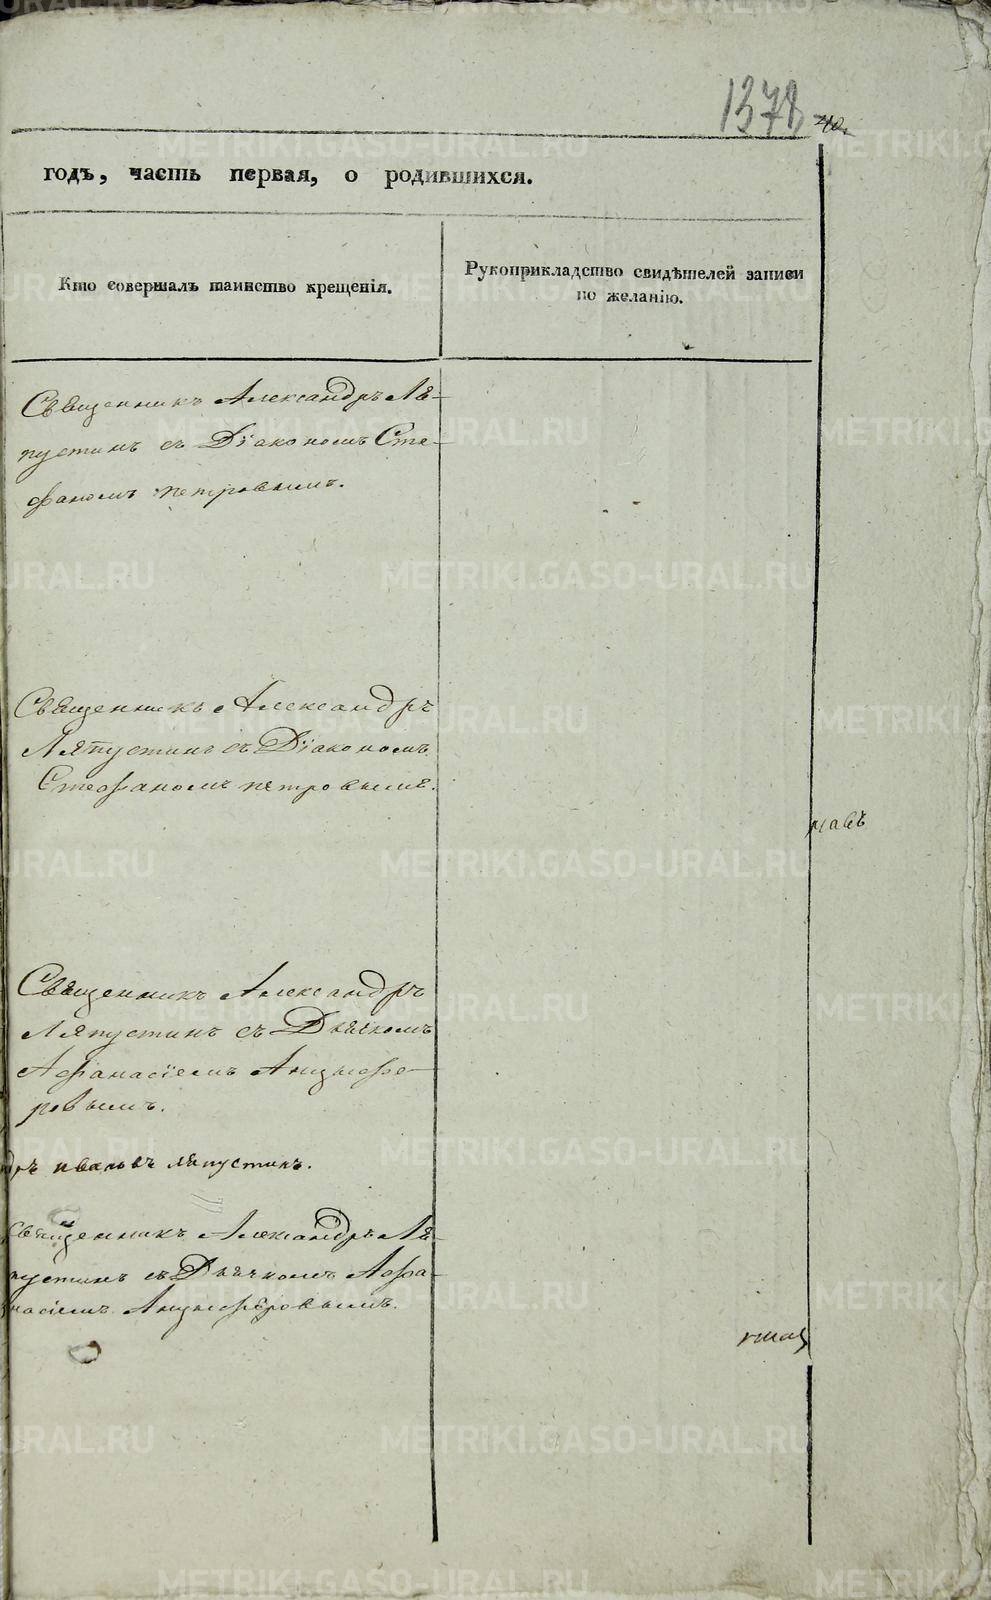 1378
40.
годъ, часть первая, о родившихся.
Кто совершалъ таинство крещенія.
Рукоприкладство свидѣтелей записи
по желанію.
Священникъ Александръ Ля-
пустинъ съ Діакономъ Сте-
фаномъ петровымъ.
Священникъ Александръ
Ляпустинъ съ Діакономъ
Стефаномъ петровымъ.
Священникъ Александръ
Ляпустинъ съ Дьячкомъ
Афанасіемъ Анцыфе-
ровымъ.
дръ ивановъ ляпустинъ.
Священникъ Александръ Ля-
пустинъ съ Дьячкомъ Афа-
насіемъ Анцыферовымъ.
METRIKI.GASO-URAL.RU